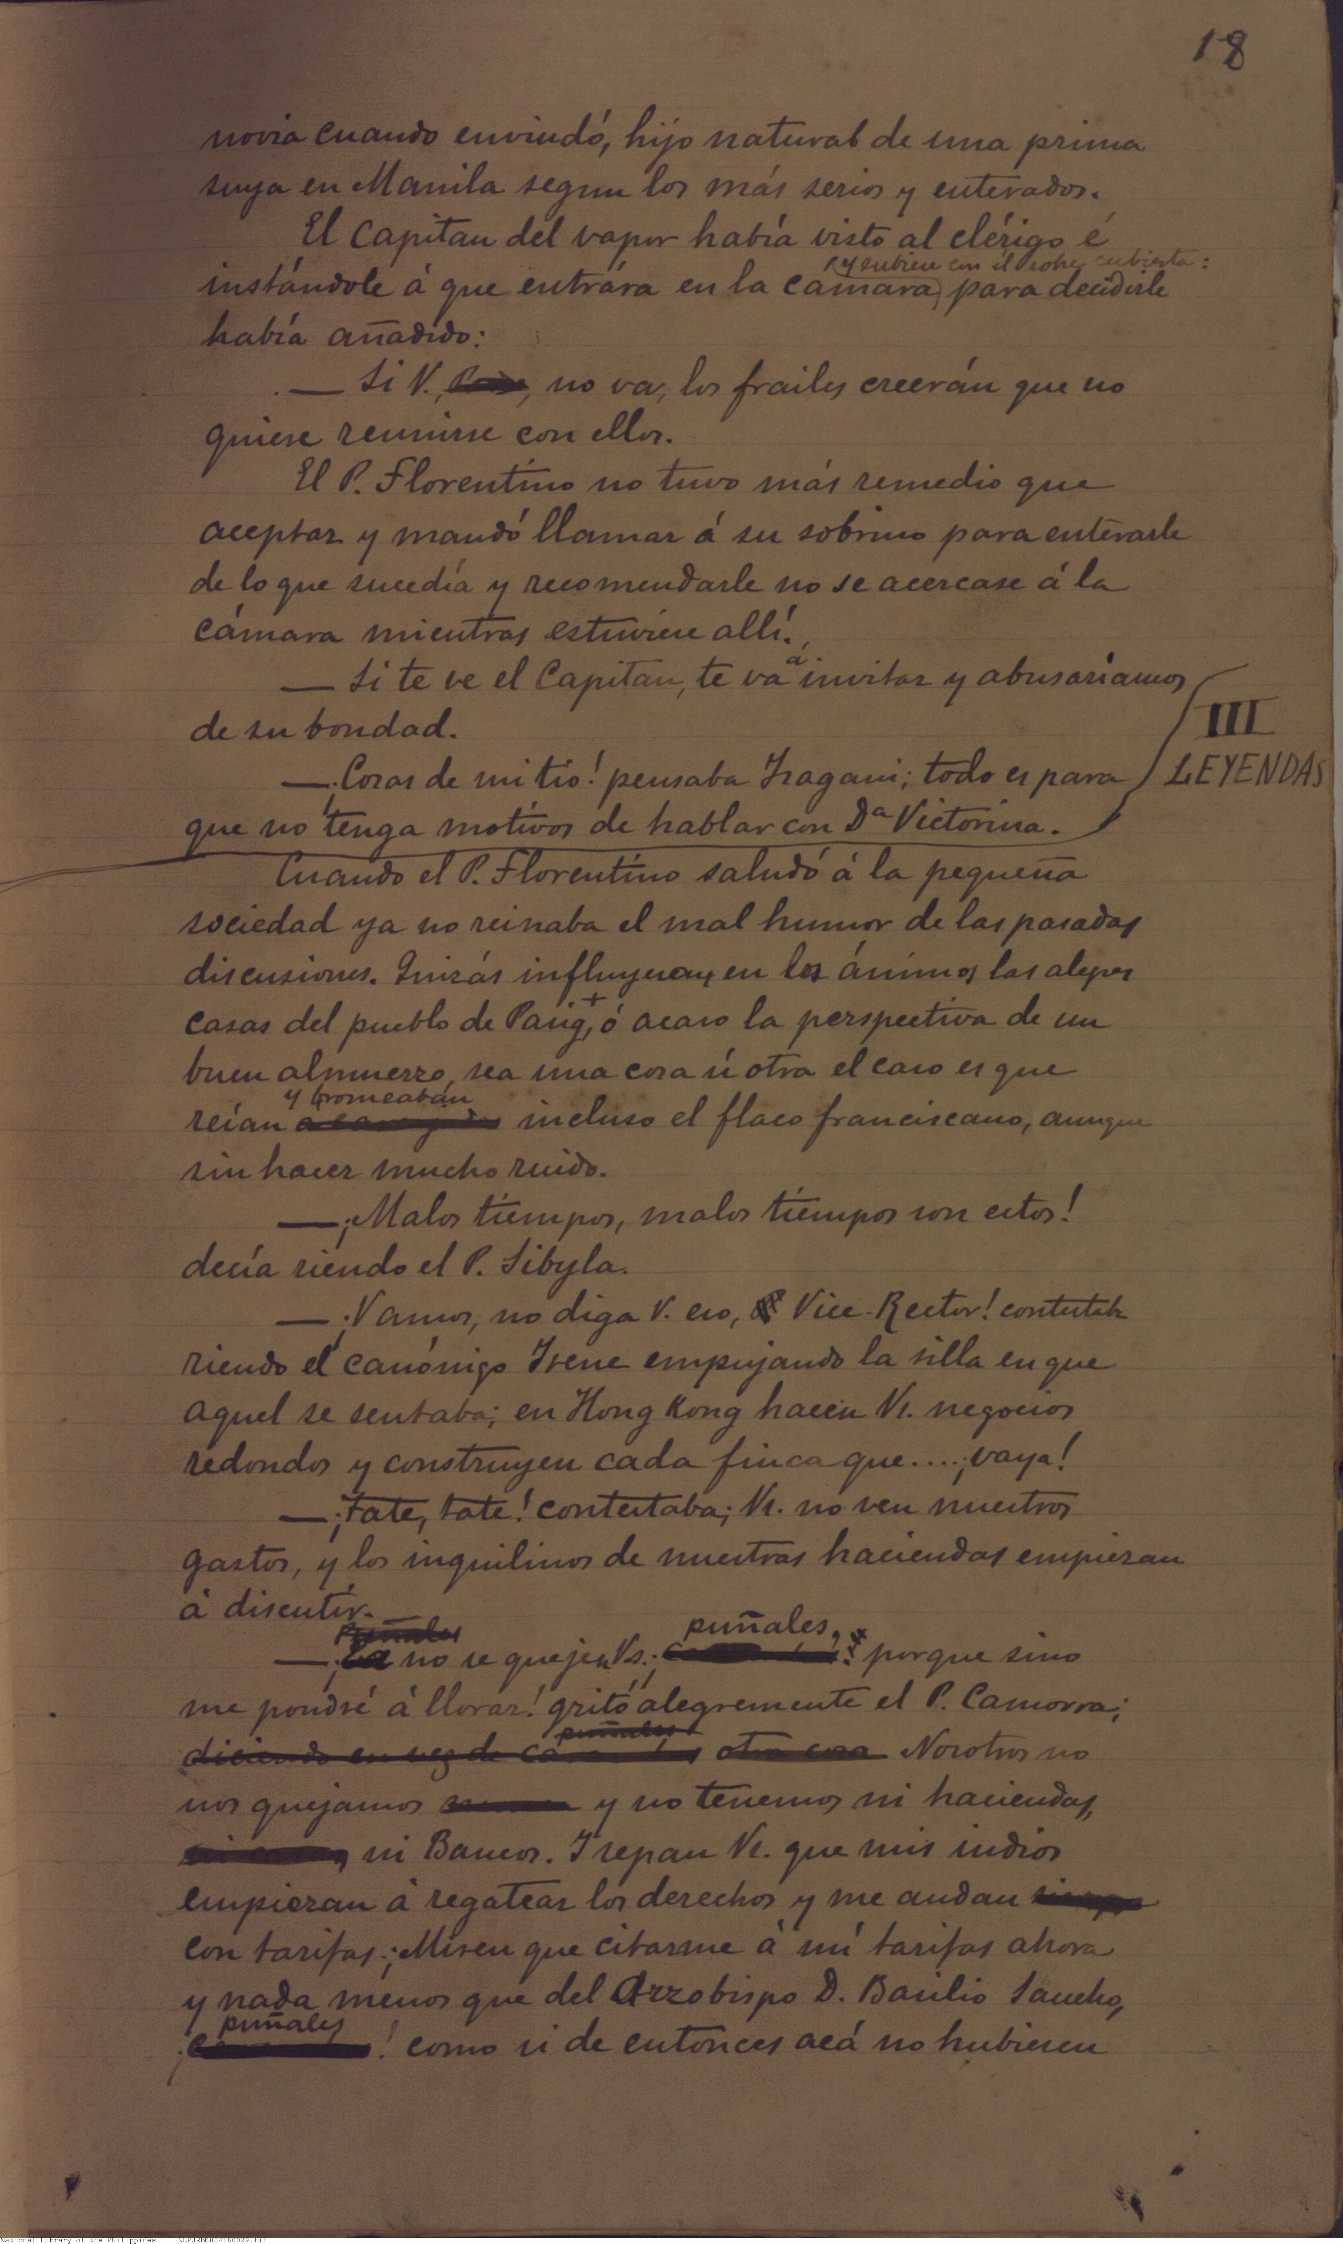 18
novia cuando enviudó, hijo natural de una prima
suya en Manila segun los más serios y enterados.
El Capitan del vapor había visto al clérigo é
y subiese con él sobre cubierta:
instándole á que entrára en la cámara, para decidirle
había añadido:
— Si V., no va, los frailes creerán que no
quiere reunirse con ellos.
El P. Florentino no tuvo más remedio que
aceptar y mandó llamar á su sobrino para enterarle
de lo que sucedía y recomendarle no se acercase á la
cámara mientras estuviese allí.
— Si te ve el Capitan, te va á invitar y abusaríamos
de su bondad.
III
LEYENDAS
— ¡Cosas de mi tio! pensaba Isagani; todo es para
que no tenga motivos de hablar con Dª Victorina.
Cuando el P. Florentino saludó á la pequeña
sociedad ya no reinaba el mal humor de las pasadas
discusiones. Quizás influyeran en los ánimos las alegres
casas del pueblo de Pasig, + ó acaso la perspectiva de un
buen almuerzo, sea una cosa ú otra el caso es que
y bromeaban
reían incluso el flaco franciscano, aunque
sin hacer mucho ruido.
— ¡Malos tiempos, malos tiempos son estos!
decía riendo el P. Sibyla.
— ¡Vamos, no diga V. eso, Vice-Rector! contestaba
riendo el canónigo Irene empujando la silla en que
aquel se sentaba; en Hong Kong hacen Vs. negocios
redondos y construyen cada finca que.... ¡vaya!
— ¡Tate, tate! contestaba; Vs. no ven nuestros
gastos, y los inquilinos de nuestras haciendas empiezan
á discutir.
puñales puñales,
— ¡Ea no se quejen Vs.; porque sino
me pondré á llorar! gritó alegremente el P. Camorra;
puñales
diciendo en vez de otra cosa Nosotros no
nos quejamos y no tenemos ni haciendas,
ni Bancos. Y sepan Vs. que mis indios
empiezan á regatear los derechos y me andan
con tarifas. ¡Miren que citarme á mí tarifas ahora
y nada menos que del Arzobispo D. Basilio Sancho,
puñales
¡ ! como si de entonces acá no hubiesen